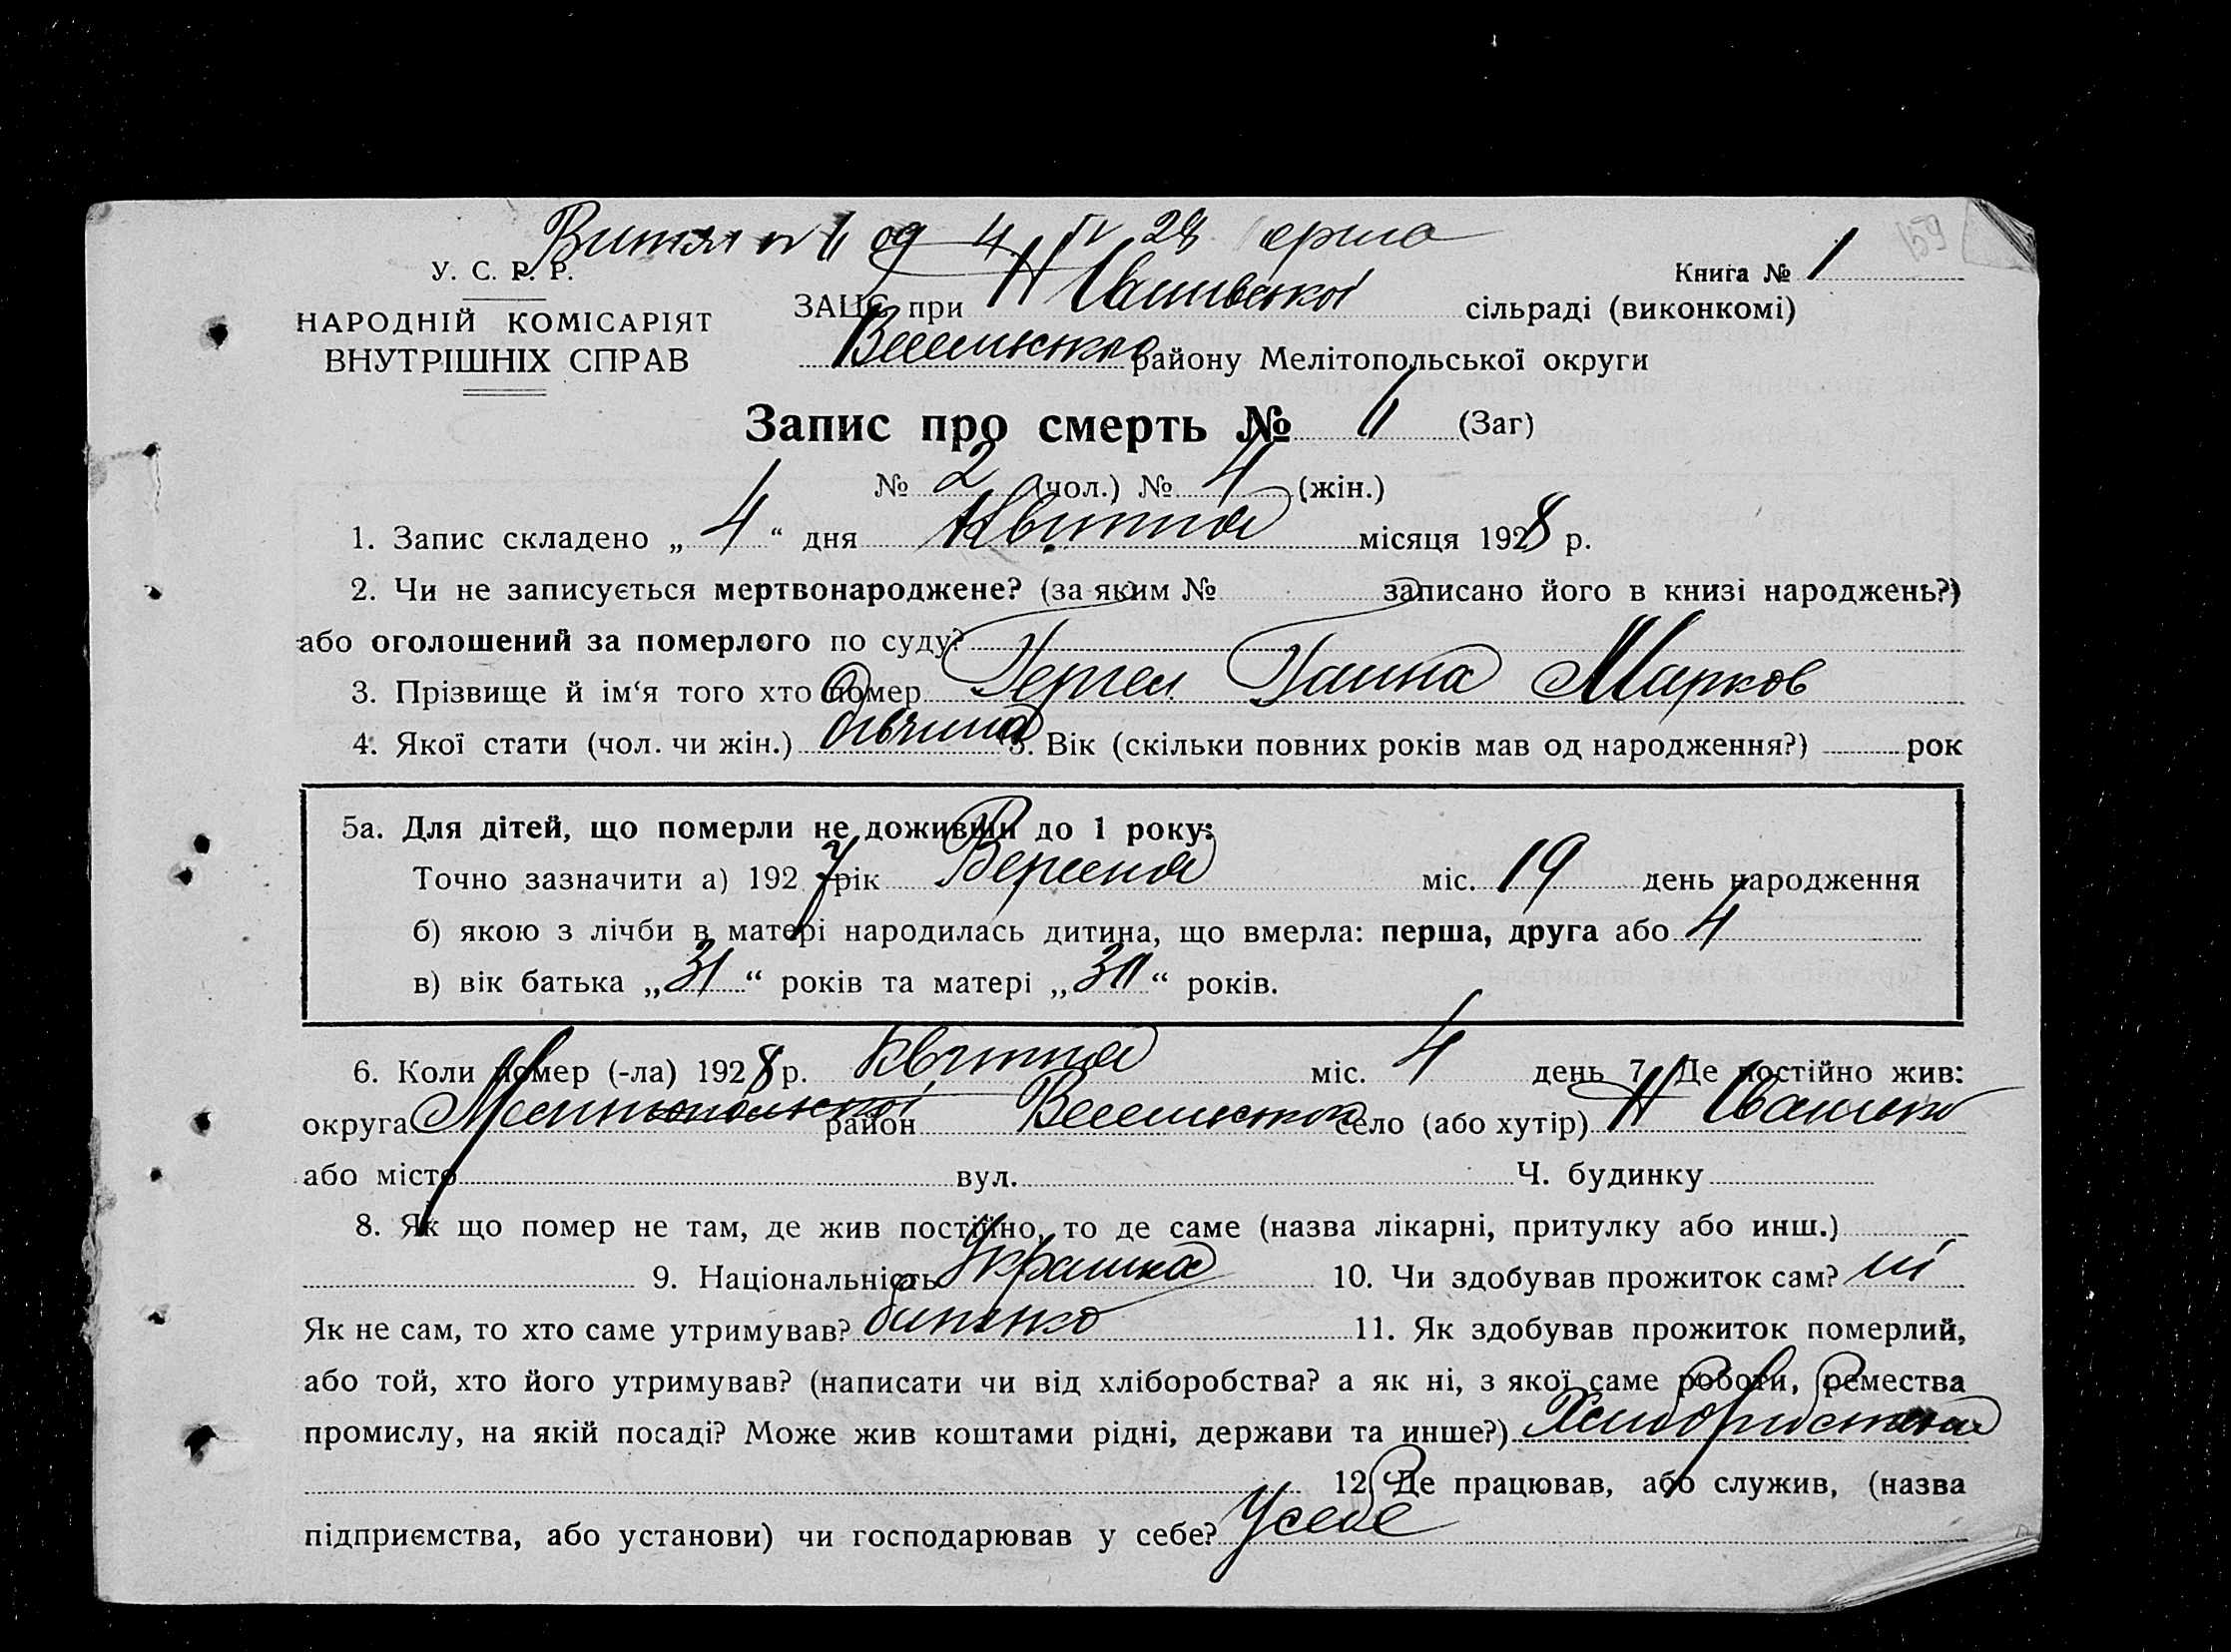 Витяг № 4 од 4 IV 28
У. С. Р. Р.
НАРОДНІЙ КОМІСАРІЯТ
ВНУТРІШНІХ СПРАВ
Книга № 1
159
ЗАЦС при Н Іванівської сільраді (виконкомі)
району Мелітопольської округи
Запис про смерть № (Заг)
№ 2 (чол.) № 4 (жін.)
1. Запис складено „ 4 “ дня Квітня місяця 1928 р.
2. Чи не записується мертвонароджене? (за яким № записано його в книзі народжень?)
або оголошений за померлого по суду?
3. Прізвище й ім‘я того хто помер Гергел Ганна Марков
4. Якої стати (чол. чи жін.) дівчина 5. Вік (скільки повних років мав од народження?) рок
5а. Для дітей, що померли не доживши до 1 року:
Точно зазначити а) 192 7 рік Вересня міс. 19 день народження
б) якою з лічби в матері народилась дитина, що вмерла: перша, друга або 4
в) вік батька „ 31 “ років та матері „ “ років.
6. Коли помер (-ла) 1928 р. Квітня міс. 4 день 7. Де постійно жив:
округа Мелітопольської район село (або хутір) Н Іванівка
або місто вул. Ч. будинку
8. Як що помер не там, де жив постійно, то де саме (назва лікарні, притулку або инш.)
9. Національність Українка 10. Чи здобував прожиток сам? ні
Як не сам, то хто саме утримував? батько 11. Як здобував прожиток померлий,
або той, хто його утримував? (написати чи від хліборобства? а як ні, з якої саме роботи, ремества
промислу, на якій посаді? Може жив коштами рідні, держави та инше?) Хліборобства
12. Де працював, або служив, (назва
підприємства, або установи) чи господарював у себе? У себе